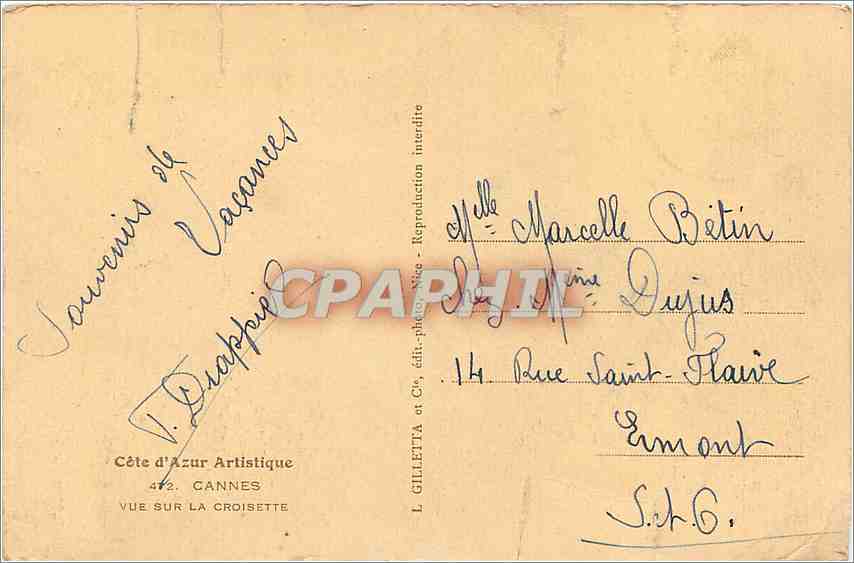 Souvenirs de
Vaçances
T. Drappier
Côte d'Azur Artistique
472. CANNES
VUE SUR LA CROISETTE
L GILLETTA et Cie, édit.-photo, Nice - Reproduction interdite
CPAPHIL
Melle Marcelle Bétin
Chez Mme Dujus
14 Rue Saint-Flaive
Ermont
S.et.O.